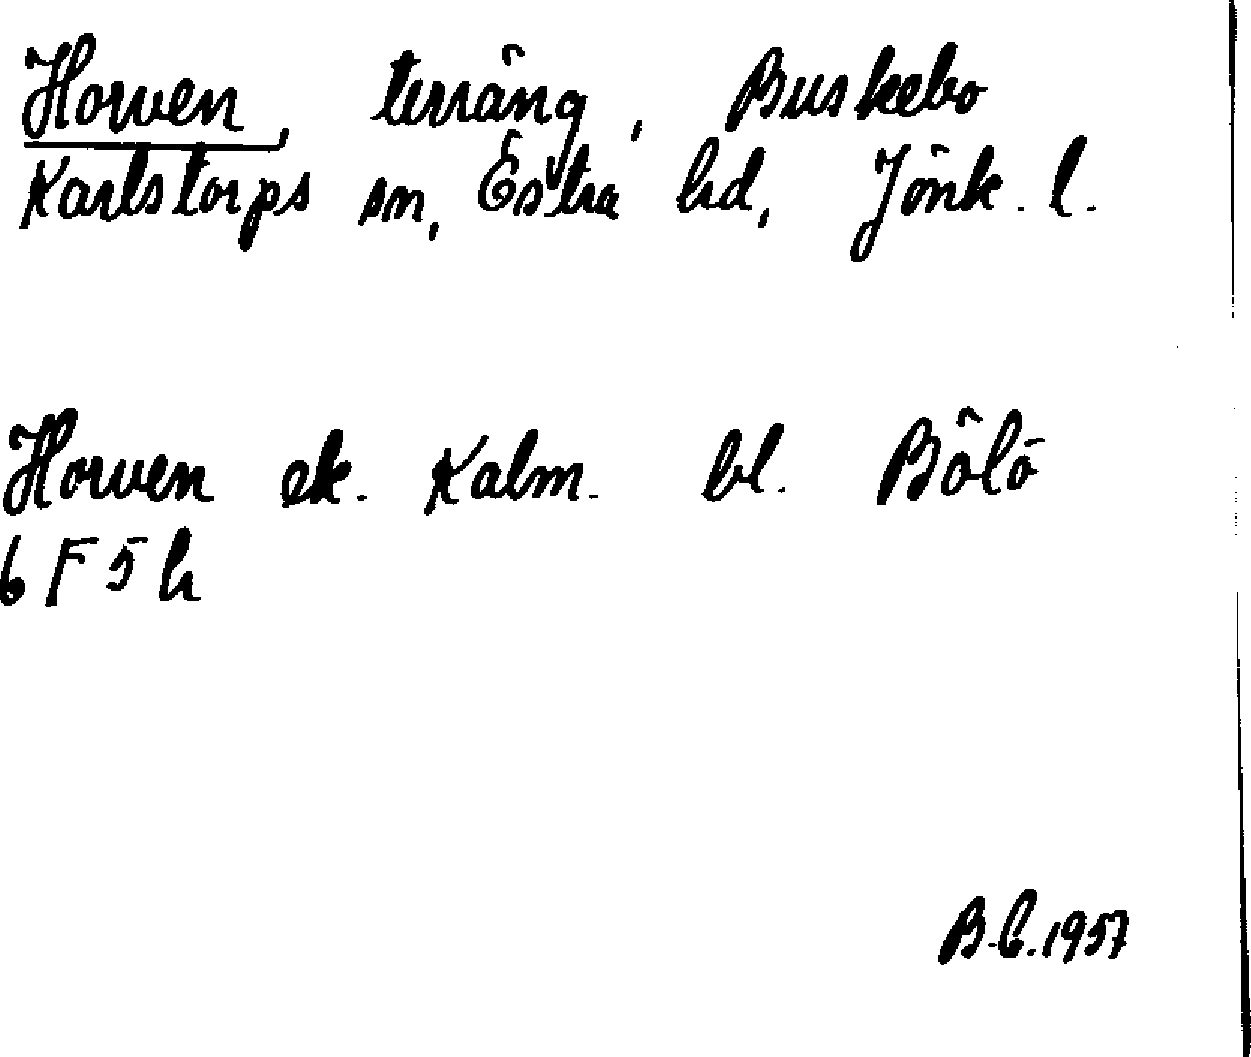 Horven, terräng, Buskebo
Karlstorps sn, Östra hd, Jönk. l.
Horven ek. Kalm. bl. Bölö
6 F 5 h
B.C. 1957